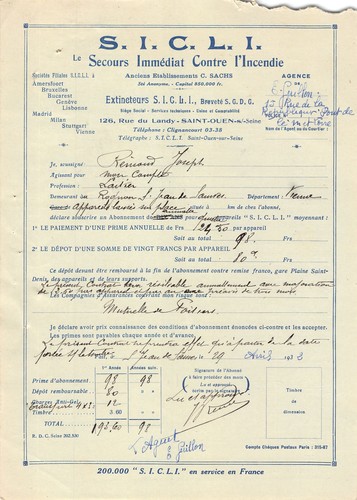 S. I. C. L. I.
Le Secours Immédiat Contre l'Incendie
Sociétés Filiales S.I.C.L.I. à
Amersfoort
Bruxelles
Bucarest
Genève
Lisbonne
Madrid
Milan
Stuttgart
Vienne
Anciens Etablissements C. SACHS
Sté Anonyme. Capital 850.000 fr.
Extincteurs S.I.C.L.I., Brevetés S.G.D.G.
Siège Social - Services techniques - Usine et Comptabilité
126, Rue du Landy - SAINT-OUEN-s/-Seine
Téléphone : Clignancourt 03-38
Télégraphe : S.I.C.L.I. Saint-Ouen-sur-Seine
AGENCE
DE
E. Guillon
15 Rue de la
République
Nom de l'Agent ou du Courtier
Je, soussigné Rémond Joseph
Agissant pour Mon Compte
Profession Laitier
Demeurant Rognon St Jean de Sauves Département : Vienne
appareil laissé sur place kms de chez l'abonné,
déclare souscrire un Abonnement de "S. I. C. L. I." moyennant :
1° LE PAIEMENT D'UNE PRIME ANNUELLE DE Frs PAR APPAREIL
Soit au total 98. Frs
2° LE DÉPOT D'UNE SOMME DE VINGT FRANCS PAR APPAREIL
Soit au total 80 Frs
Ce dépôt devant être remboursé à la fin de l'abonnement contre remise franco, gare Plaine Saint-Denis, des appareils et de leurs supports.
Le présent Contrat sera résiliable annuellement avec majoration
de par appareil et par an avec préavis de trois mois
Les Compagnies d'Assurances couvrant mon risque sont :
Mutuelle de Poitiers
Je déclare avoir pris connaissance des conditions d'abonnement énoncées ci-contre et les accepter.
Les primes sont payables chaque année et d'avance.
Le présent Contrat ne prendra effet qu'à partir de la date
St Jean de Sauves, le 29 Avril 193
1re Année
Années suiv.
Prime d'abonnement 98 98
Dépôt remboursable 80
Charges Anti-Gel 12
Timbre 3.60
TOTAL 193.60 98
R. D. C. Seine
Signature de l'Abonné
faire précéder des mots
Lu et approuvé
Lu et approuvé
Timbre de
dimension
L'Agent
E Guillon
Compte Chèques Postaux Paris : 315-67
200.000 "S. I. C. L. I." en service en France